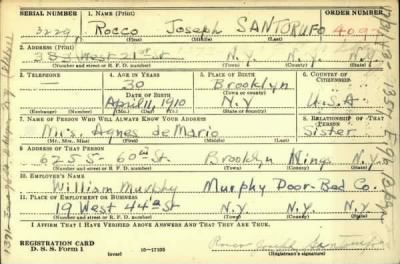 SERIAL NUMBER 1. NAME (Print) ORDER NUMBER
3229 Rocco Joseph SANTORUFO 4097
(First) (Middle) (Last)
2. ADDRESS (Print)
383 West 21st N.Y. N.Y. N.Y.
(Number and street or R. F. D. number) (Town) (County) (State)
3. TELEPHONE 4. AGE IN YEARS 5. PLACE OF BIRTH 6. COUNTRY OF CITIZENSHIP
— 30 Brooklyn
DATE OF BIRTH
April 11, 1910 N.Y U.S.A.
(Exchange) (Number) (Mo.) (Day) (Yr.) (State or country)
7. NAME OF PERSON WHO WILL ALWAYS KNOW YOUR ADDRESS 8. RELATIONSHIP OF THAT PERSON
Mrs. Agnes de Mario Sister
(Mr., Mrs., Miss) (First) (Middle) (Last)
9. ADDRESS OF THAT PERSON
6255-60th St. Brooklyn Kings N.Y.
(Number and street or R. F. D. number) (Town) (County) (State)
10. EMPLOYER'S NAME
William Murphy Murphy Door-Bed Co.
11. PLACE OF EMPLOYMENT OR BUSINESS
19 West 44th St N.Y. N.Y. N.Y.
(Number and street or R. F. D. number) (Town) (County) (State)
I AFFIRM THAT I HAVE VERIFIED ABOVE ANSWERS AND THAT THEY ARE TRUE.
REGISTRATION CARD
D. S. S. Form 1 (over) 16—17105 Rocco Joseph Santorufo
(Registrant's signature)